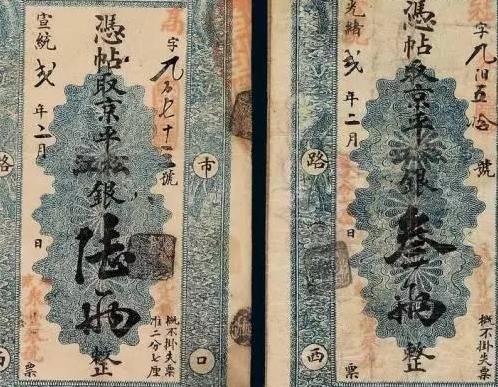 市口
字九百七十三號
概不掛失票
准二分七厘
憑帖取京平松江銀陸兩整
宣統弍年二月 日
路
票
字九百五拾號
概不掛失票
憑帖取京平松江銀叁兩整
光緒弍年二月 日
路西
票